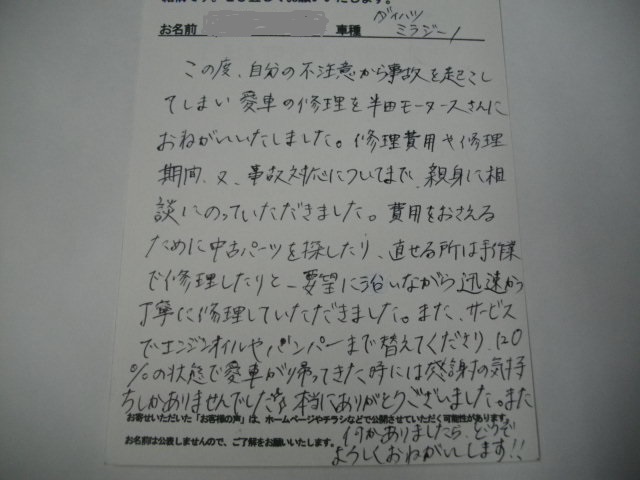 お名前 車種 ダイハツ
ミラジーノ
この度、自分の不注意から事故を起こし
てしまい愛車の修理を半田モータースさんに
おねがいいたしました。修理費用や修理
期間、又、事故対応についてまで、親身に相
談にのっていただきました。費用をおさえる
ために中古パーツを探したり、直せる所は手作業
で修理したりと、要望に沿いながら迅速かつ
丁寧に修理していただきました。また、サービス
でエンジンオイルやバンパーまで替えてくださり、120
%の状態で愛車が帰ってきた時には感謝の気持
ちしかありませんでした。本当にありがとうございました。また
お寄せいただいた「お客様の声」は、ホームページやチラシなどで公開させていただく可能性があります。
お名前は公表しませんので、ご了解をお願いいたします。何かありましたら、どうぞ
よろしくおねがいします!!